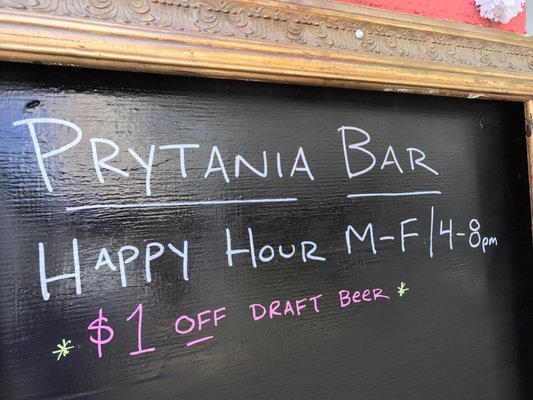 PRYTANIA BAR
HAPPY HOUR M-F/4-8pm
* $1 OFF DRAFT BEER *